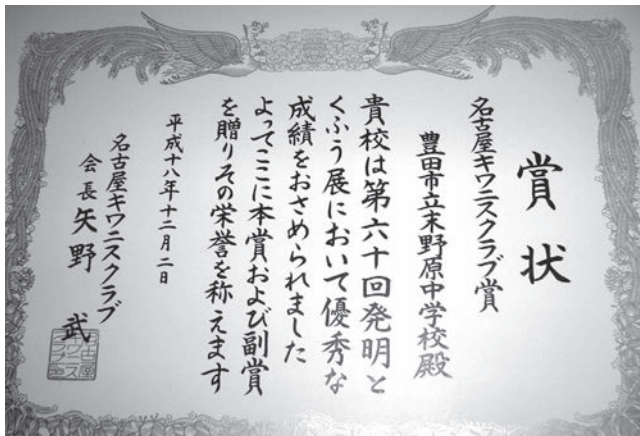 賞状
名古屋キワニスクラブ賞
豊田市立末野原中学校殿
貴校は第六十回発明と
くふう展において優秀な
成績をおさめられました
よってここに本賞および副賞
を贈りその栄誉を称えます
平成十八年十二月二日
名古屋キワニスクラブ
会長矢野武